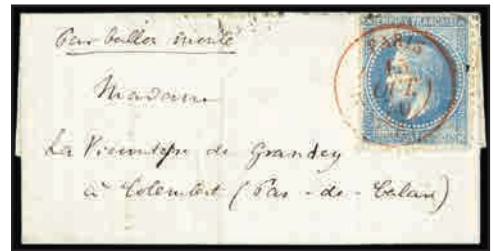 EMPIRE FRANÇAIS
Par ballon monté
PARIS
OCT.
Madame
La Vicomtesse de Grandey
à Colembert (Pas-de-Calais)